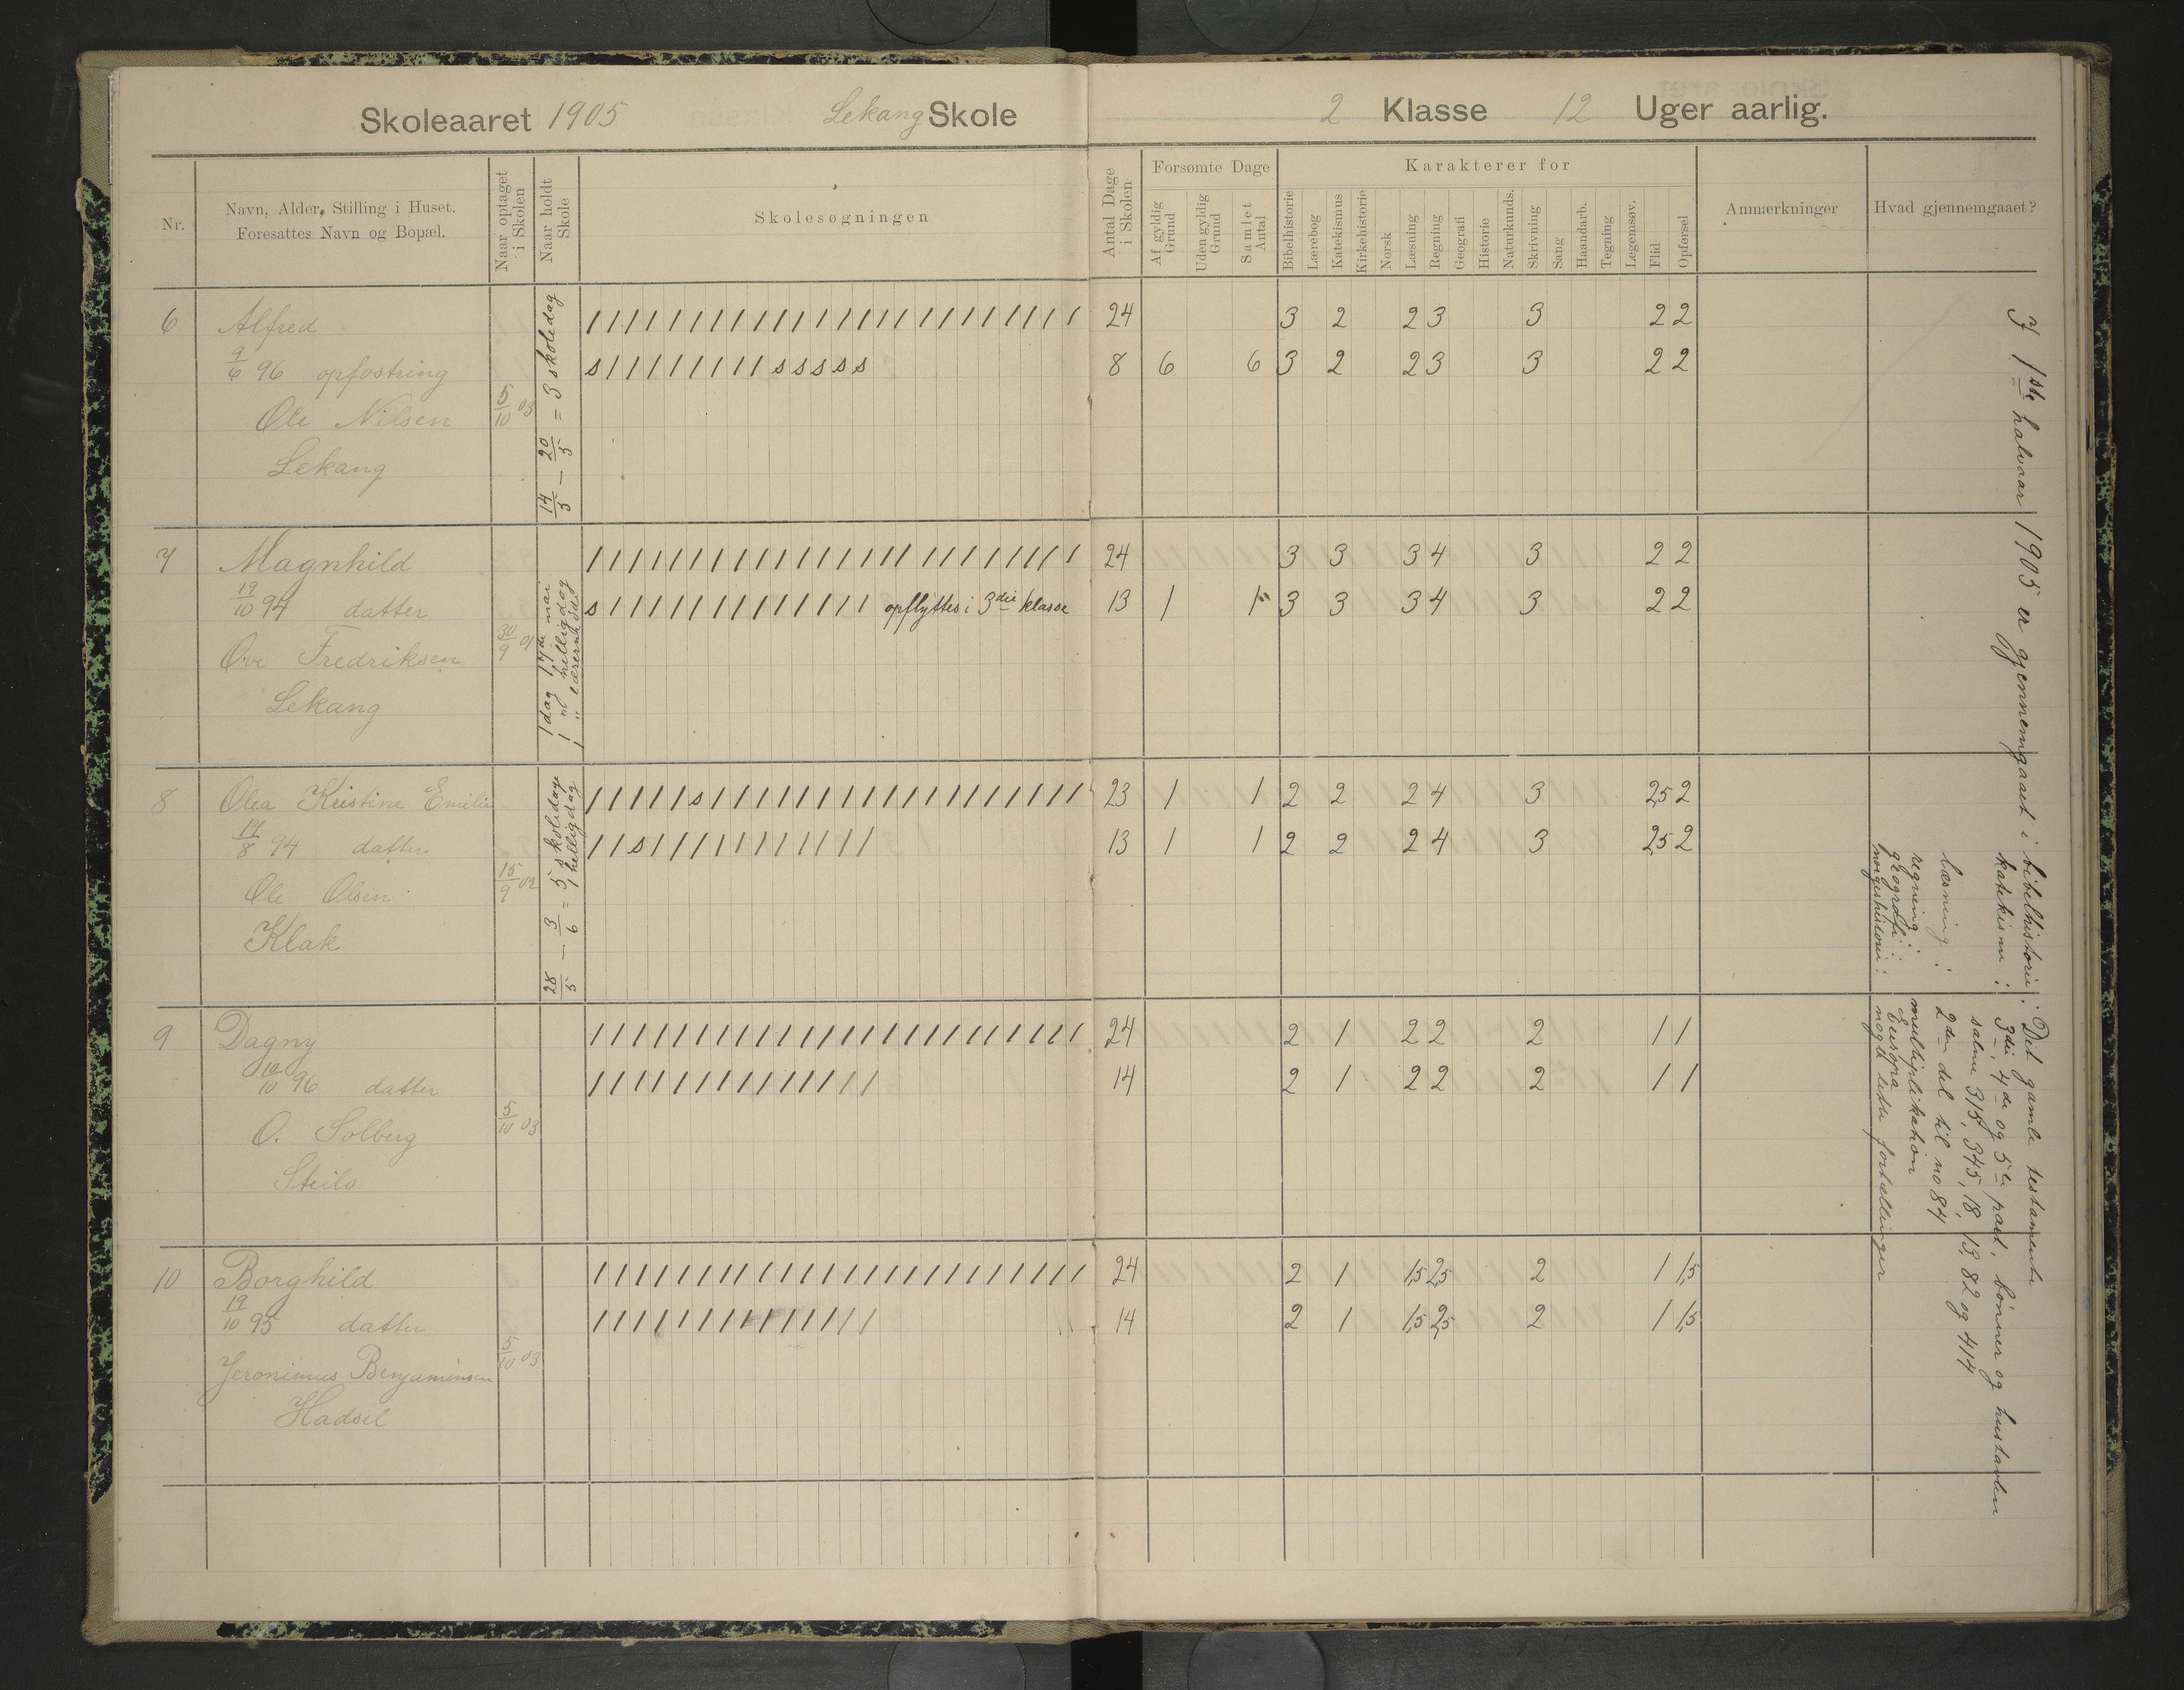 Skoleaaret 1905 Lekang Skole 2 Klasse 12 Uger aarlig.
Nr.
Navn, Alder, Stilling i Huset.
Foresattes Navn og Bopæl.
Naar optaget
i Skolen
Naar holdt
Skole
Skolesøgningen
Antal Dage
i Skolen
Forsømte Dage
Af gyldig
Grund
Uden gyldig
Grund
Samlet
Antal
Karakterer for
Bibelhistorie
Lærebog
Katekismus
Kirkehistorie
Norsk
Læsning
Regning
Geografi
Historie
Naturkunds.
Skrivning
Sang
Haandarb.
Tegning
Legemsøv.
Flid
Opførsel
Anmærkninger
Hvad gjennemgaaet?
6 Alfred / / / / / / / / / / / / / / / / / / / / / / / / 24 3 2 2 3 3 2 2
9/6 96 opfostring s / / / / / / / / s s s s s 8 6 6 3 2 2 3 3 2 2
Ole Nilsen 5/10 03
Lekang
14/5 — 20/5 = 3 skoledag
7 Magnhild / / / / / / / / / / / / / / / / / / / / / / / / 24 3 3 3 4 3 2 2
19/10 94 datter s / / / / / / / / / / / / / opflyttes i 3die klasse 13 1 1 3 3 3 4 3 2 2
Ove Fredriksen 30/9 01
Lekang
1 dag 17de mai
1 " helligdag
1 "
8 Olea Kristine Emilie / / / / / s / / / / / / / / / / / / / / / / / / 23 1 1 2 2 2 4 3 2,5 2
17/8 94 datter / / s / / / / / / / / / / / 13 1 1 2 2 2 4 3 2,5 2
Ole Olsen 15/9 02
Klak
28/5 — 3/6 = 5 skoledage
1 helligdag
9 Dagny / / / / / / / / / / / / / / / / / / / / / / / / 24 2 1 2 2 2 1 1
10/10 96 datter / / / / / / / / / / / / / / 14 2 1 2 2 2 1 1
O. Solberg 5/10 03
Steilo
10 Borghild / / / / / / / / / / / / / / / / / / / / / / / / 24 2 1 1,5 2,5 2 1 1,5
19/10 95 datter / / / / / / / / / / / / / / 14 2 1 1,5 2,5 2 1 1,5
Jeronimus Benjaminsen 5/10 03
Hadsel
I 1ste halvaar 1905 er gjennemgaaet i bibelhistorie: Det gamle testamente
katekisme: 3die, 4de og 5te part, bönner og hustavlen
salme 315, 345, 18, 13, 82 og 414
læsning: 2den del til no 84
regning: multiplikation
geografi: Europa
norgeshistorie: nogle lette fortællinger